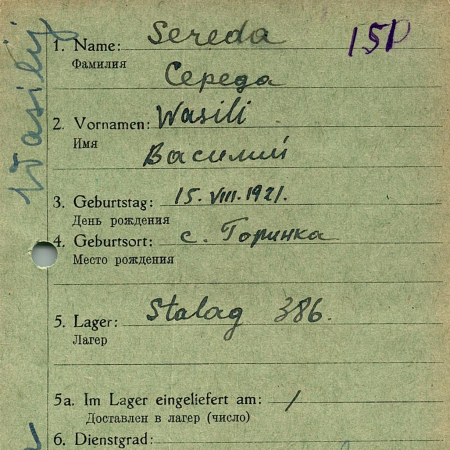 Wasilij
1. Name: Sereda 15P
Фамилия
Середа
2. Vornamen: Wasili
Имя
Василий
3. Geburtstag: 15. VIII. 1921.
День рождения
4. Geburtsort: с. Горинка
Место рождения
5. Lager: Stalag 386.
Лагер
5a. Im Lager eingeliefert am: /
Доставлен в лагер (число)
6. Dienstgrad: